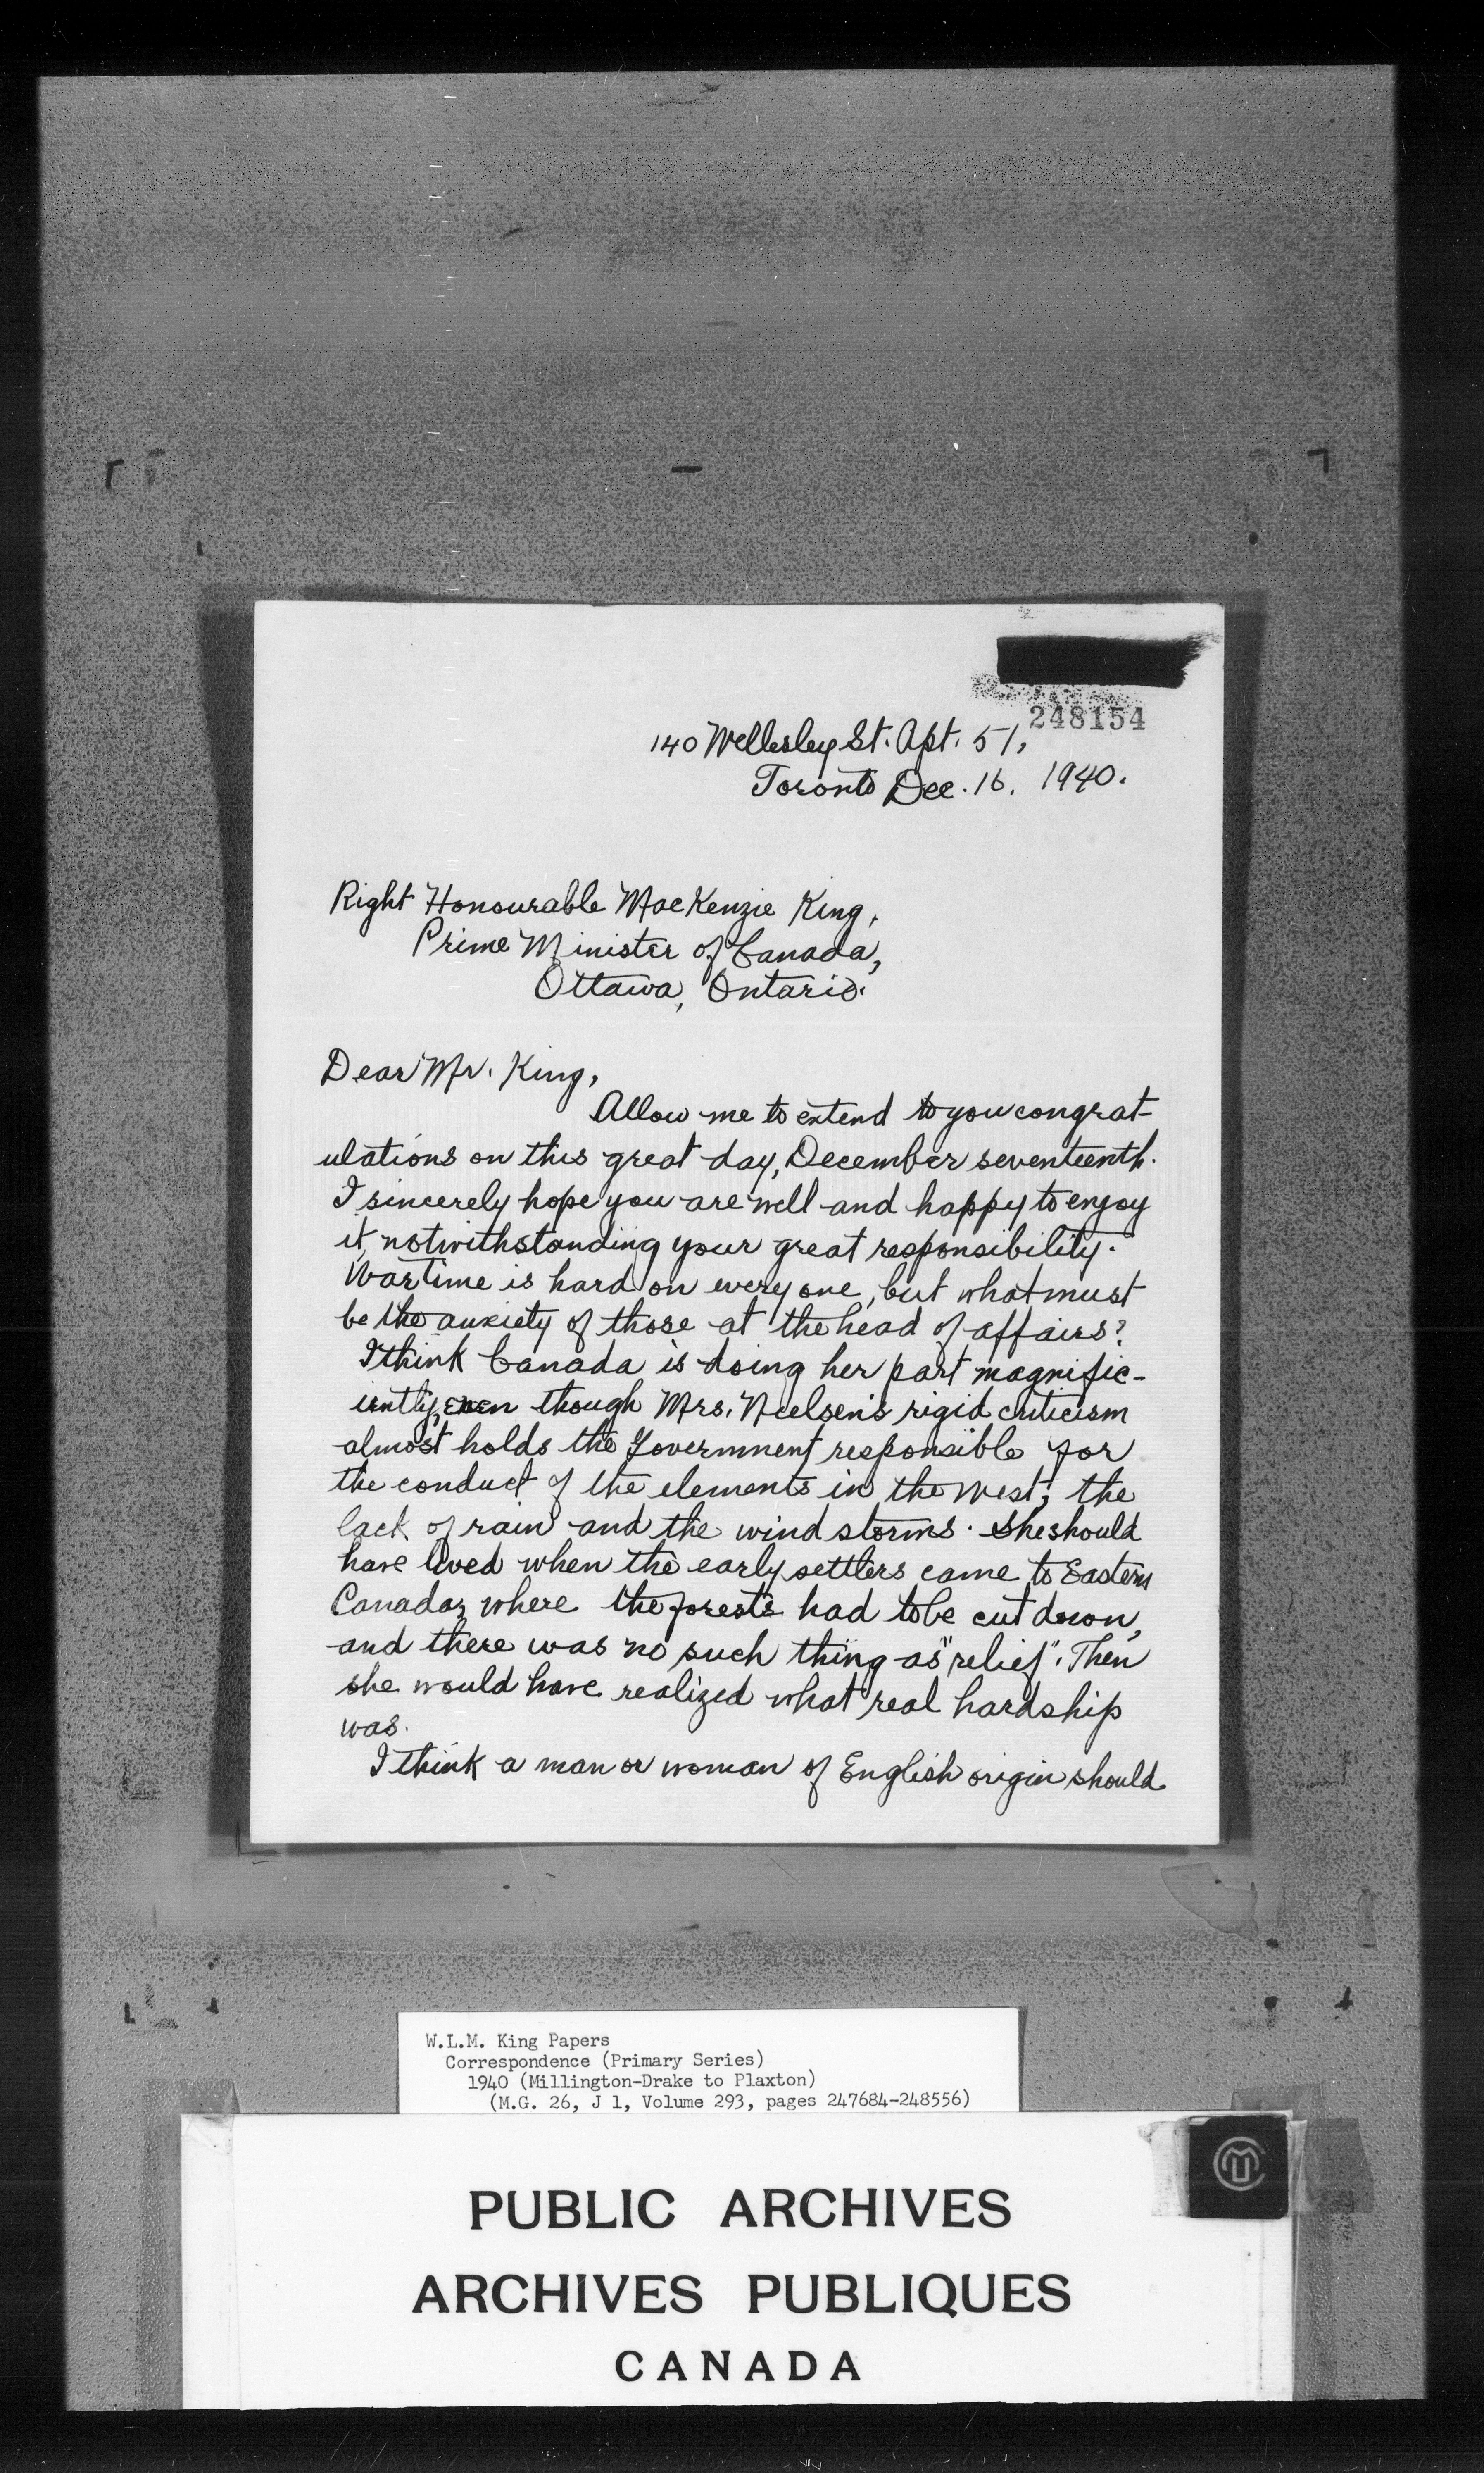 248154
140 Wellesley St. Apt. 51,
Toronto Dec. 16, 1940.
Right Honourable MacKenzie King,
Prime Minister of Canada,
Ottawa, Ontario.
Dear Mr. King,
Allow me to extend to you congrat-
ulations on this great day, December seventeenth.
I sincerely hope you are well and happy to enjoy
it notwithstanding your great responsibility.
Wartime is hard on every one, but what must
be the anxiety of those at the head of affairs?
I think Canada is doing her part magnific-
iently, even though Mrs. Neelsen's rigid criticism
almost holds the Government responsible for
the conduct of the elements in the West; the
lack of rain and the wind storms. She should
have lived when the early settlers came to Eastern
Canada, where the forests had to be cut down,
and there was no such thing as "relief". Then
she would have realized what real hardship
was.
I think a man or woman of English origin should
W.L.M. King Papers
Correspondence (Primary Series)
1940 (Millington-Drake to Plaxton)
(M.G. 26, J 1, Volume 293, pages 247684-248556)
PUBLIC ARCHIVES
ARCHIVES PUBLIQUES
CANADA